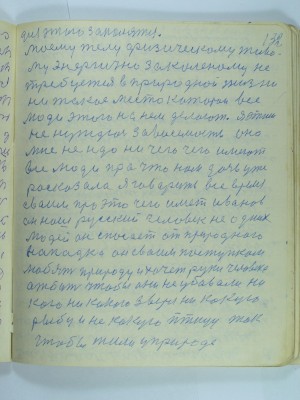 132
моему телу физическому живо
му энергично закаленому не
требуется в природной жизни
ни такое место которое все
люди этого на нем делают я этим
не нуждаюс зависемость оно
мне не надо не чего чего имеют
все люди про что нам дочь уже
росказала я говорить все время
своим про это чего имеет иванов
он наш русский человек не одних
людей он спосает от природного
нападка он своим поступком
любить природу и хочет руки человека
чтобы они не убавали ни
кого никокого зверя ни какую
рыбу и не какую птицу так
чтобы жило у природе